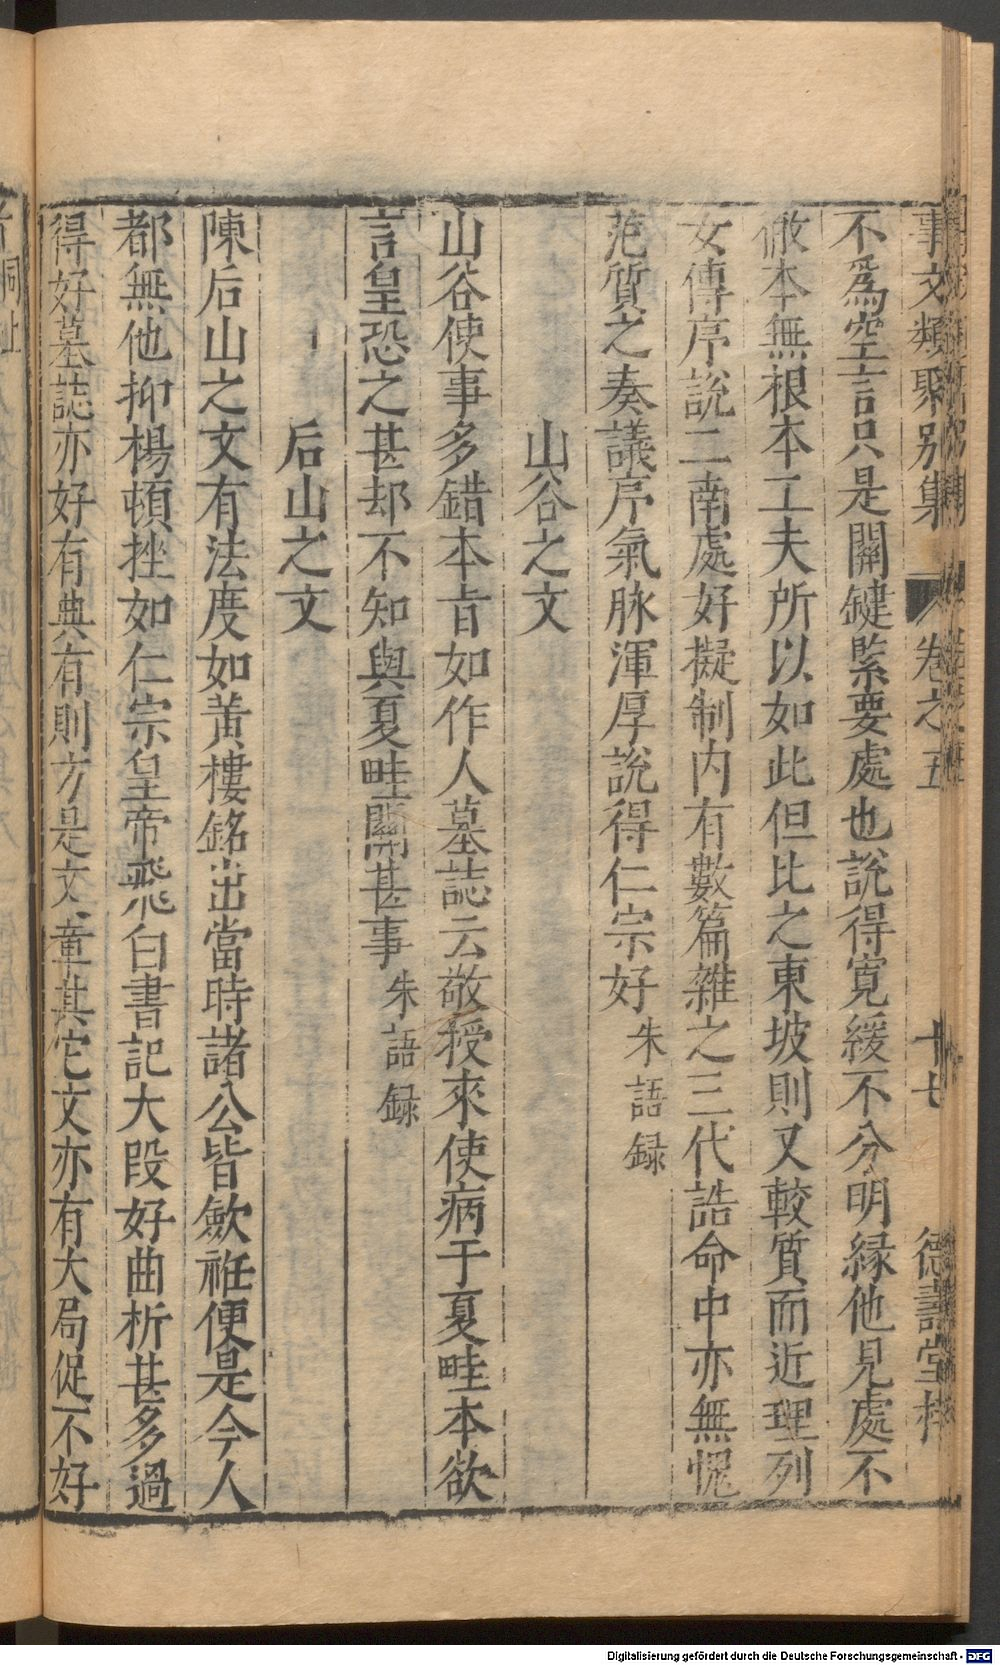 事文類聚别集 卷之五 十七 德壽堂梓
不爲空言只是關鍵緊要處也說得寬緩不分明緣他見處不
倣本無根本工夫所以如此但比之東坡則又較質而近理列
女傳序說二南處好擬制内有數篇雜之三代誥命中亦無愧
范質之奏議序氣脉渾厚說得仁宗好 朱語録
山谷之文
山谷使事多錯本旨如作人墓誌云敬授來使病于夏畦本欲
言皇恐之甚却不知與夏畦關甚事 朱語録
后山之文
陳后山之文有法度如黄樓銘出當時諸公皆歛袵便是今人
都無他抑楊頓挫如仁宗皇帝飛白書記大段好曲析甚多過
得好墓誌亦好有典有則方是文章其它文亦有大局促不好
Digitalisierung gefördert durch die Deutsche Forschungsgemeinschaft - DFG